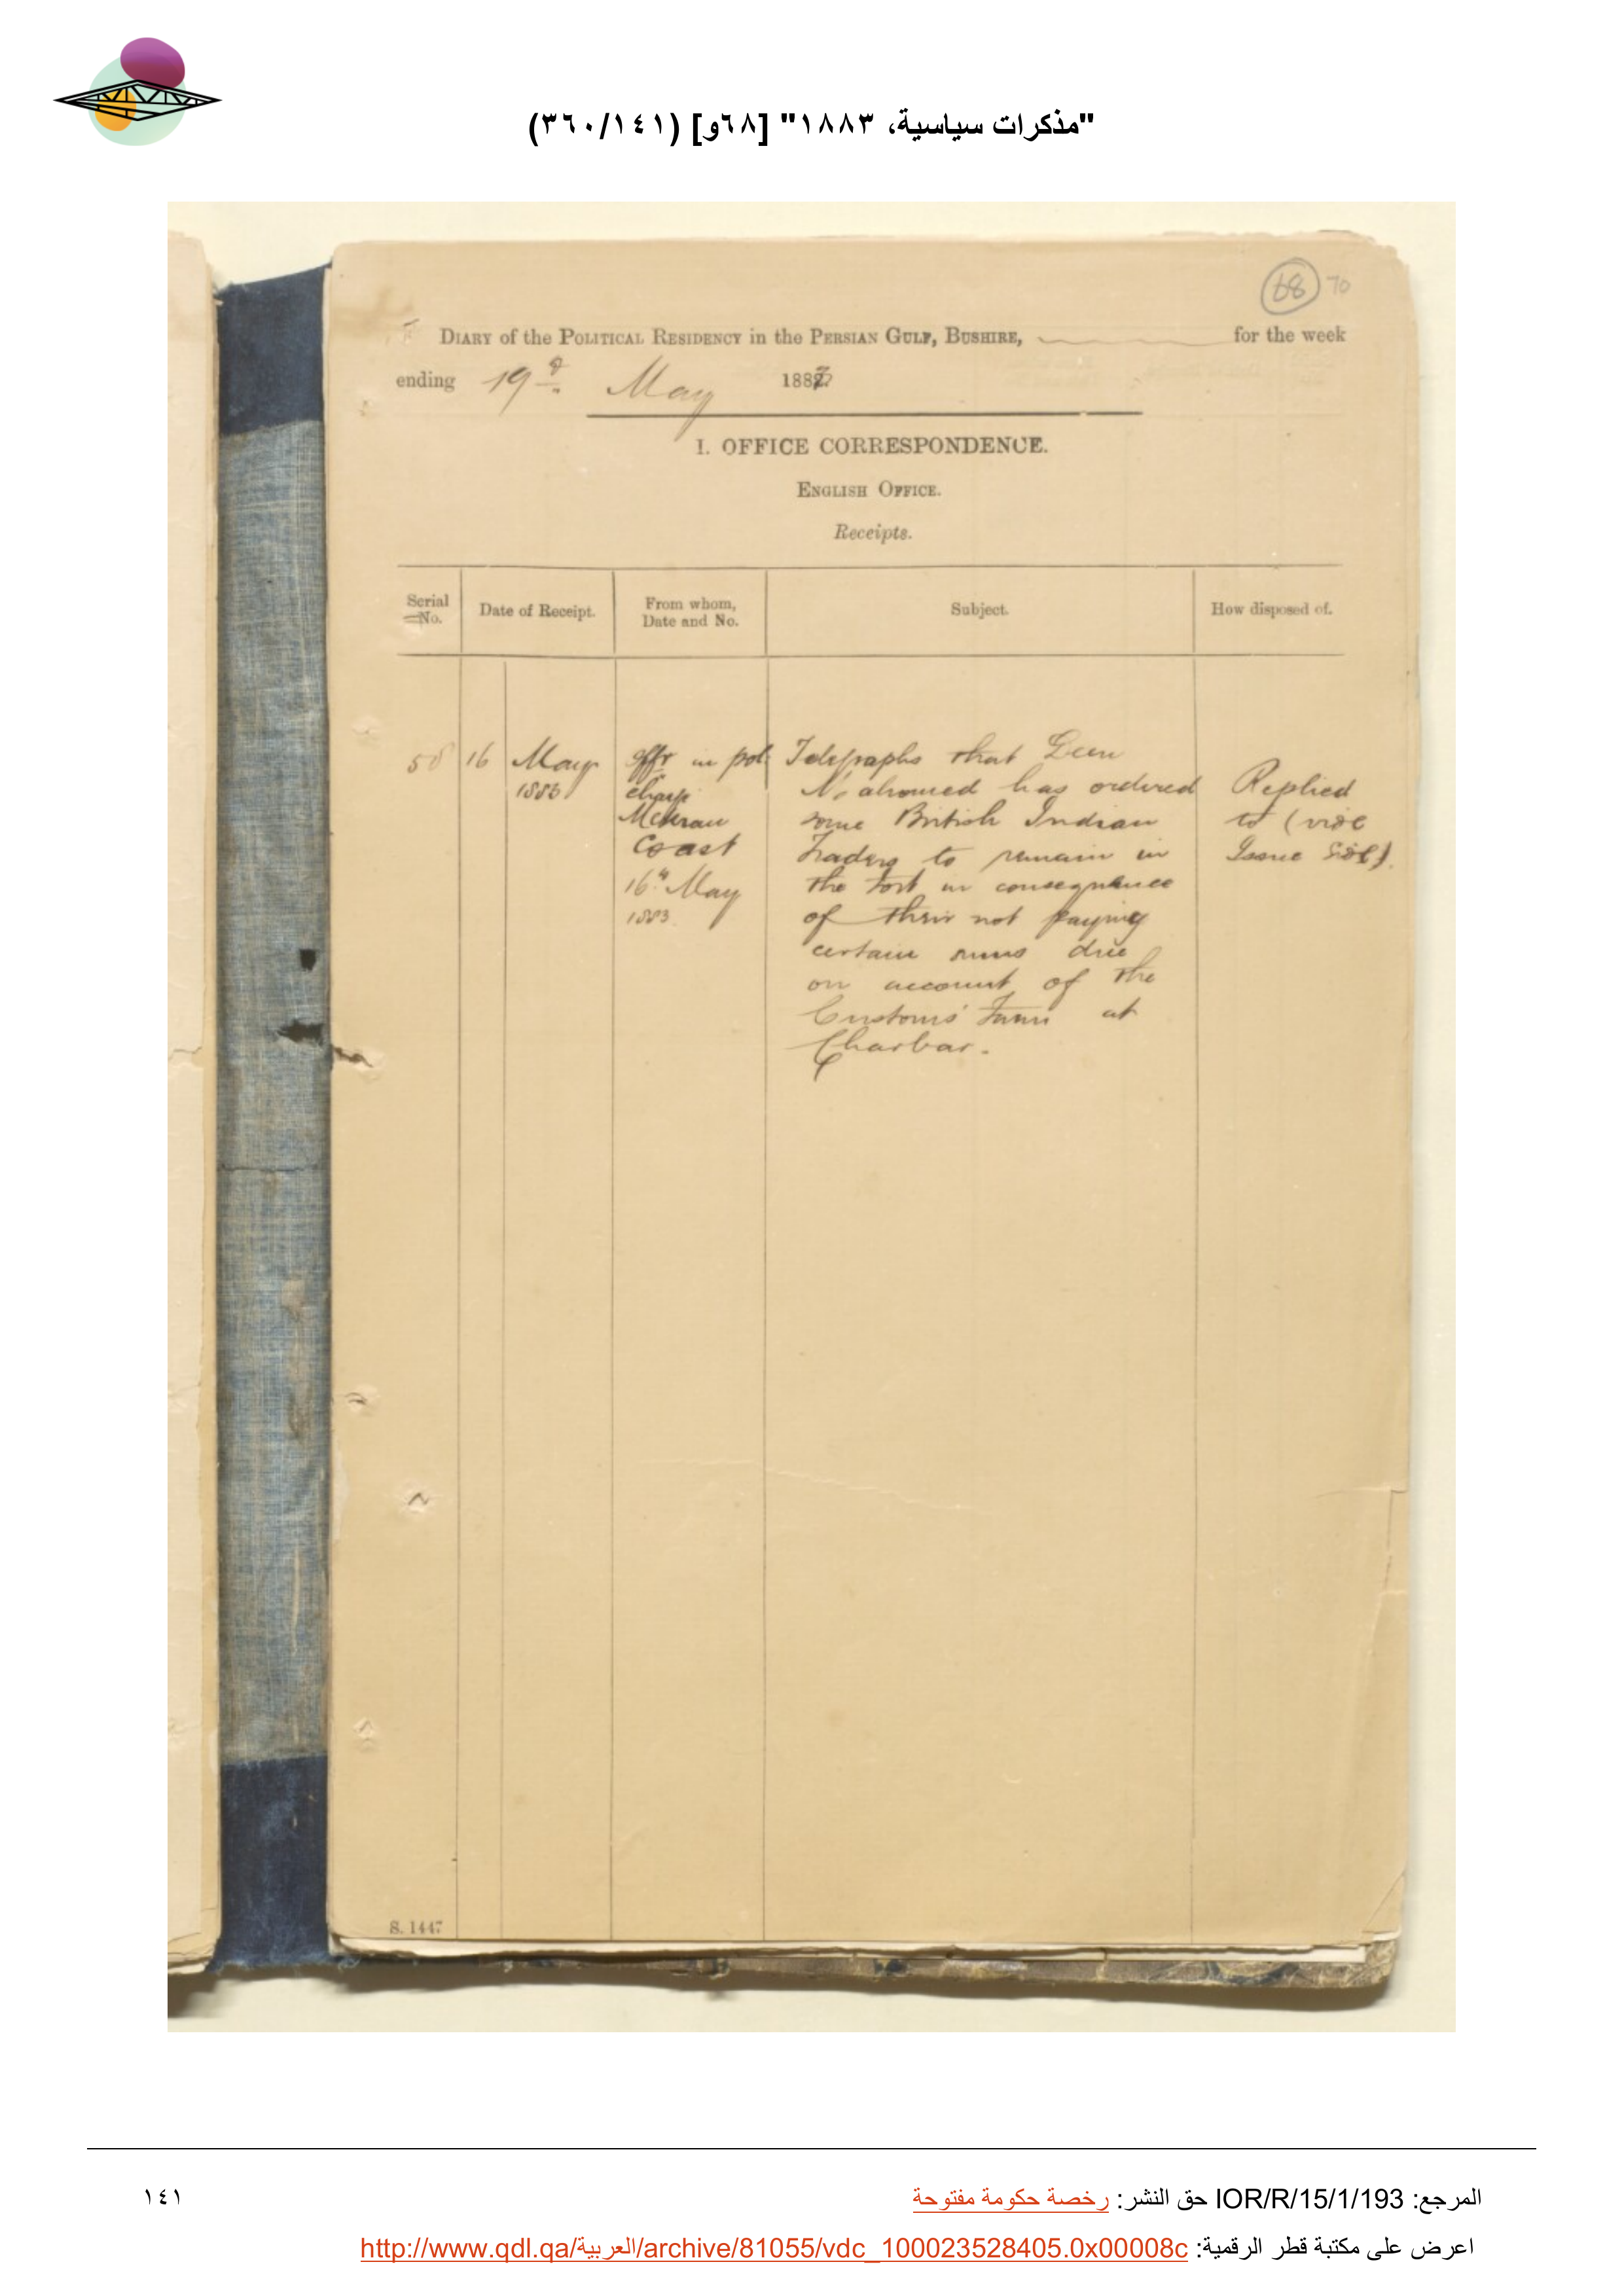 "مذكرات سياسية، ١٨٨٣" [٦٨و] (٣٦٠/١٤١)
68 70
DIARY of the POLITICAL RESIDENCY in the PERSIAN GULF, BUSHIRE, for the week
ending 19th May 1883
I. OFFICE CORRESPONDENCE.
ENGLISH OFFICE.
Receipts.
Serial No.
Date of Receipt.
From whom, Date and No.
Subject.
How disposed of.
16 May
1883
offr in pol
charge
Mekran
Coast
16th May
1883
Telegraphs that Deen
Mahomed has ordered
some British Indian
Traders to remain in
the fort in consequence
of their not paying
certain sums due
on account of the
Customs' Farm at
Charbar.
Replied
to (vide
Issue side).
S. 1447
المرجع: IOR/R/15/1/193 حق النشر: رخصة حكومة مفتوحة
١٤١
اعرض على مكتبة قطر الرقمية: http://www.qdl.qa/العربية/archive/81055/vdc_100023528405.0x00008c